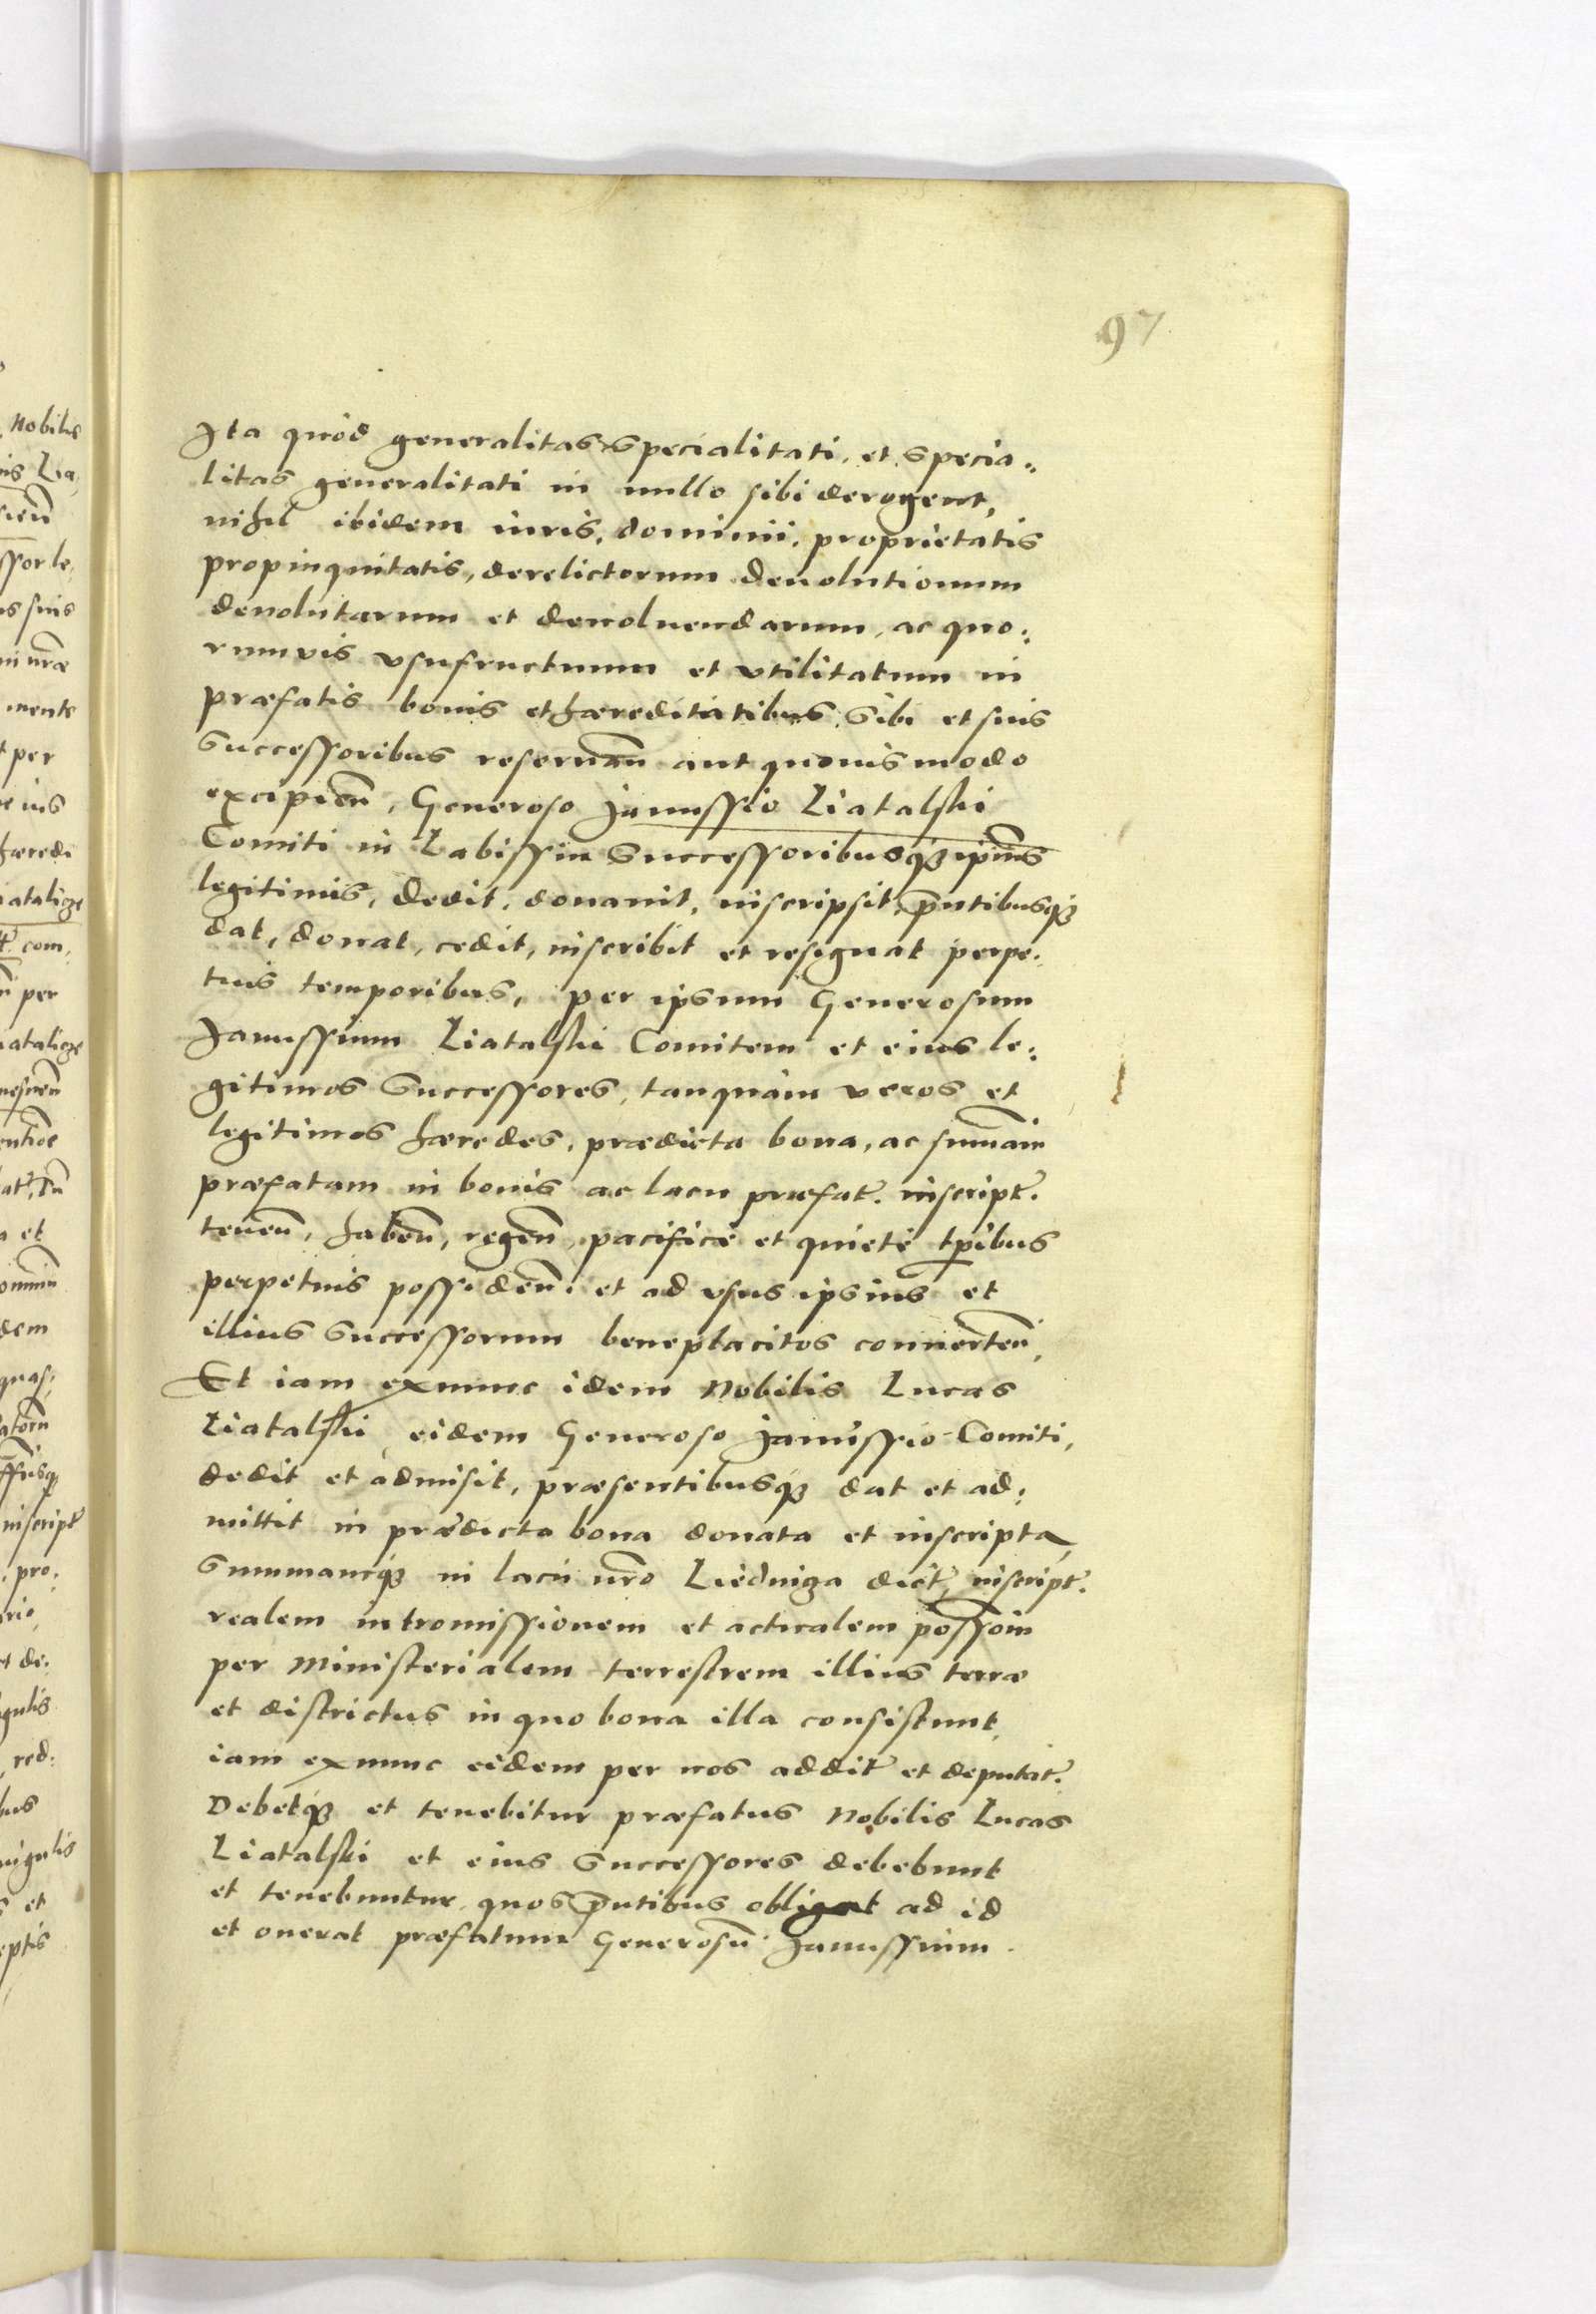 97
Ita quòd generalitas specialitati, et specia„
litas generalitati in nullo sibi derogent,
nihil ibidem iuris, dominii, proprietatis
propinquitatis, derelictorum deuolutionum
deuolutarum et deuoluendarum, ac quo:
rumvis vsufructuum et vtilitatum in
præfatis bonis et hæreditatibus, sibi et suis
successoribus reseruañ aut quouis modo
excipieñ, Generoso Janussio Liatalski
Comiti in Labissin successoribusq́ʒ ipius̃
legitimis, dedit, donauit, inscripsit, p̃ntibusq́ʒ
dat, donat, cedit, inscribit et resignat perpe:
tuis temporibus, per ipsum Generosum
Janussium Liatalski Comitem et eius le:
gitimos successores, tanquàm veros et
legitimos hæredes, prædicta bona, ac sum̃am
præfatam in bonis ac lacu præfat̃. inscript̃.
teneñ, habeñ, regeñ, pacificè et quietè tp̃ibus
perpetuis possideñ. et ad vsus ipsius et
illius successorum beneplacitos conuerteñ,
Et iam exnunc idem Nobilis Lucas
Liatalski, eidem Generoso Janussio Comiti,
dedit et admisit, præsentibusq́ʒ dat et ad:
mittit in prædicta bona donata et inscripta,
summamq́ʒ in lacu nr̃o Liedniga dict̃, inscript̃.
realem intromissionem et actualem possõin
per Ministerialem terrestrem illius terræ
et districtus in quo bona illa consistunt,
iam exnunc eidem per nos addit̃ et deputat̃.
Debetq́ʒ et tenebitur præfatus Nobilis Lucas
Liatalski et eius successores debebunt
et tenebuntur, quos p̃ntibus obligat ad id
et onerat præfatum Generosũ Janussium.